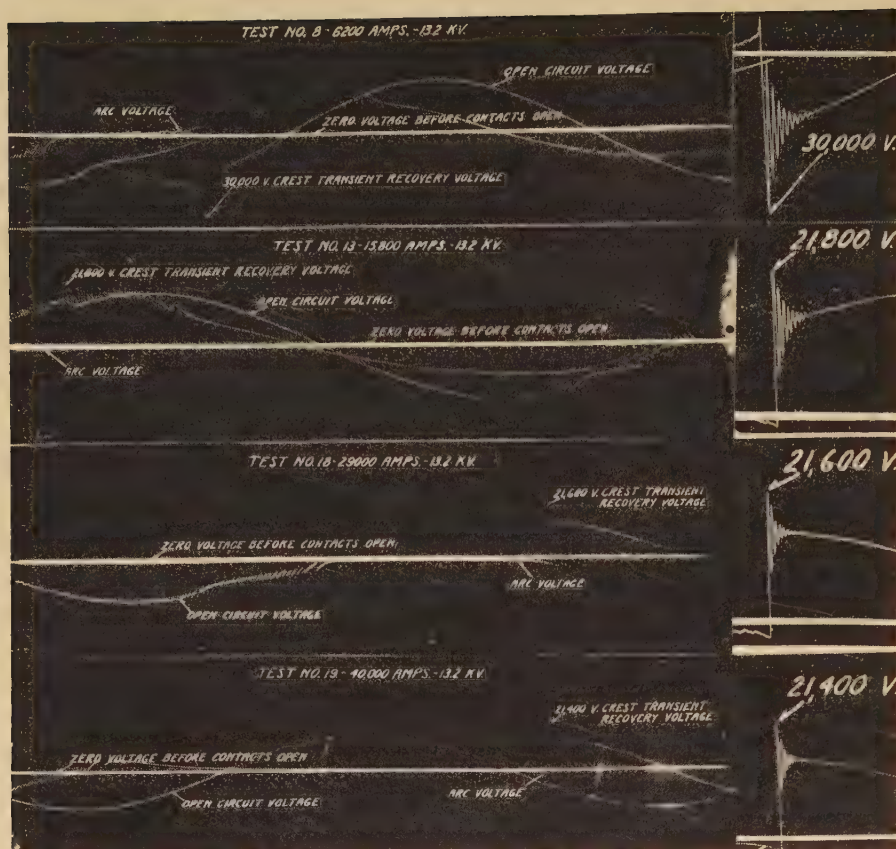 TEST NO. 8-6200 AMPS.-13.2 KV.
OPEN CIRCUIT VOLTAGE
ARC VOLTAGE
ZERO VOLTAGE BEFORE CONTACTS OPEN
30,000 V. CREST TRANSIENT RECOVERY VOLTAGE
30,000 V.
TEST NO. 13-15,800 AMPS.-13.2 KV.
21,800 V. CREST TRANSIENT RECOVERY VOLTAGE
OPEN CIRCUIT VOLTAGE
ZERO VOLTAGE BEFORE CONTACTS OPEN
ARC VOLTAGE
21,800 V.
TEST NO. 18-29000 AMPS.-13.2 KV.
21,600 V. CREST TRANSIENT
RECOVERY VOLTAGE
ZERO VOLTAGE BEFORE CONTACTS OPEN
ARC VOLTAGE
OPEN CIRCUIT VOLTAGE
21,600 V.
TEST NO. 19-40,000 AMPS.-13.2 KV.
21,400 V. CREST TRANSIENT
RECOVERY VOLTAGE
ZERO VOLTAGE BEFORE CONTACTS OPEN
OPEN CIRCUIT VOLTAGE
ARC VOLTAGE
21,400 V.